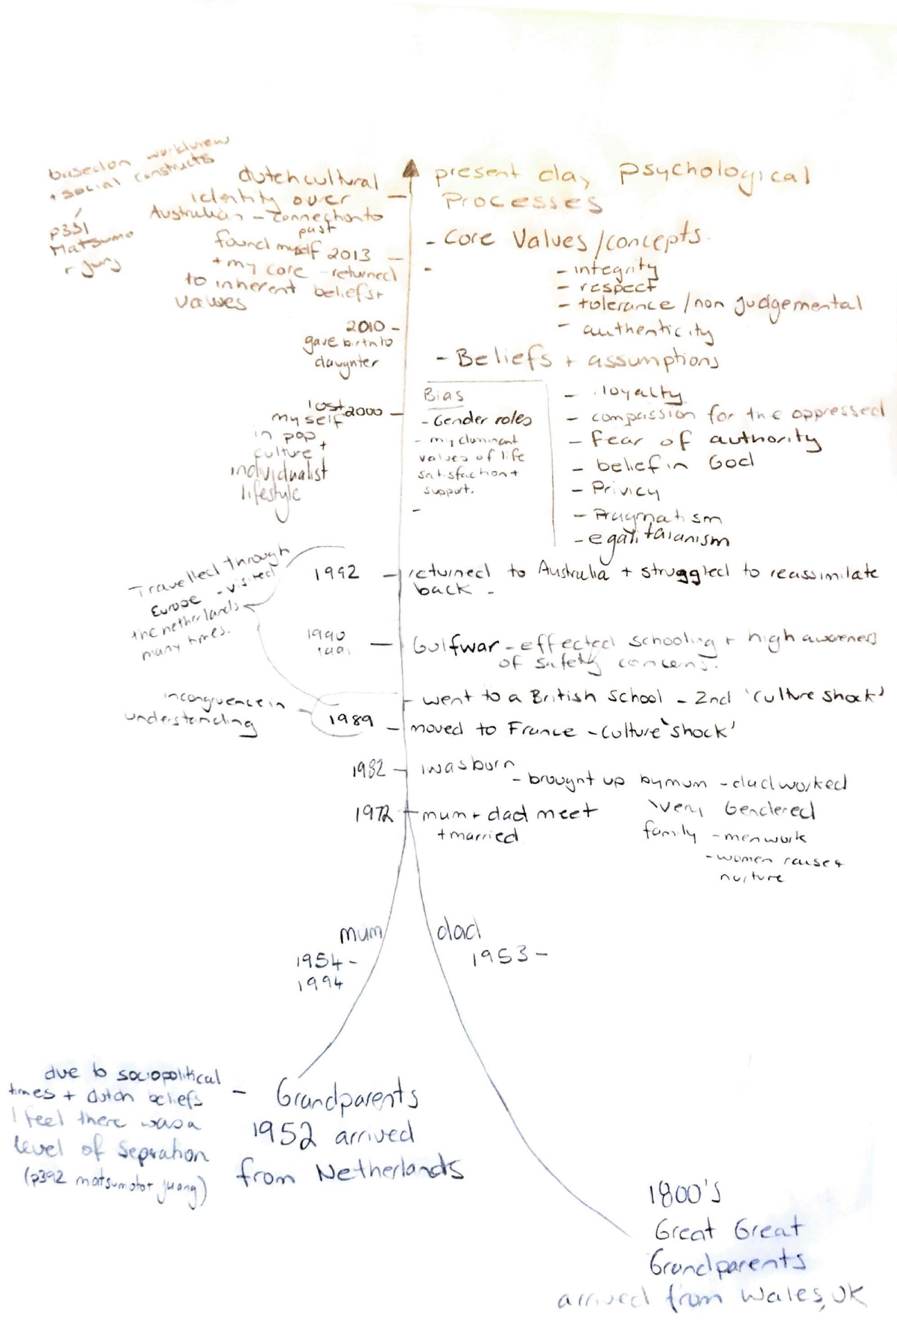 based on worldview
+ social constructs
p331
Matsumo
+ Jung
dutch cultural
identity over
Australian - connection to
past
found myself 2013
+ my core - returned
to inherent beliefs +
values
2010 -
gave birth to
daughter
lost 2000
my self
in pop
culture +
individualist
lifestyle
present day psychological
processes
- Core Values/concepts.
-
- integrity
- respect
- tolerance / non judgemental
- authenticity
- Beliefs + assumptions
Bias
- Gender roles
- my dominant
values of life
satisfaction +
support.
-
- loyalty
- compassion for the oppressed
- Fear of authority
- belief in God
- Privicy
- Pragmatism
- egalitaianism
Travelled through
Europe - visited
the netherlands
many times.
1992 - returned to Australia + struggled to reassimilate
back -
1990
1991
Gulfwar - effected schooling + high awareness
of safety concerns.
- went to a British school - 2nd 'culture shock'
incongruence in
understanding
1989 - moved to France - culture 'shock'
1982 - i was born
- brought up by mum - dad worked
very Gendered
family - men work
- women raise +
nurture
1972 - mum + dad meet
+ married
mum
1954 -
1994
dad
1953 -
due to sociopolitical
times + dutch beliefs
I feel there was a
level of sepration
(p392 matsumoto + juang)
- Grandparents
1952 arrived
from Netherlands
1800's
Great Great
Grandparents
arrived from Wales, UK